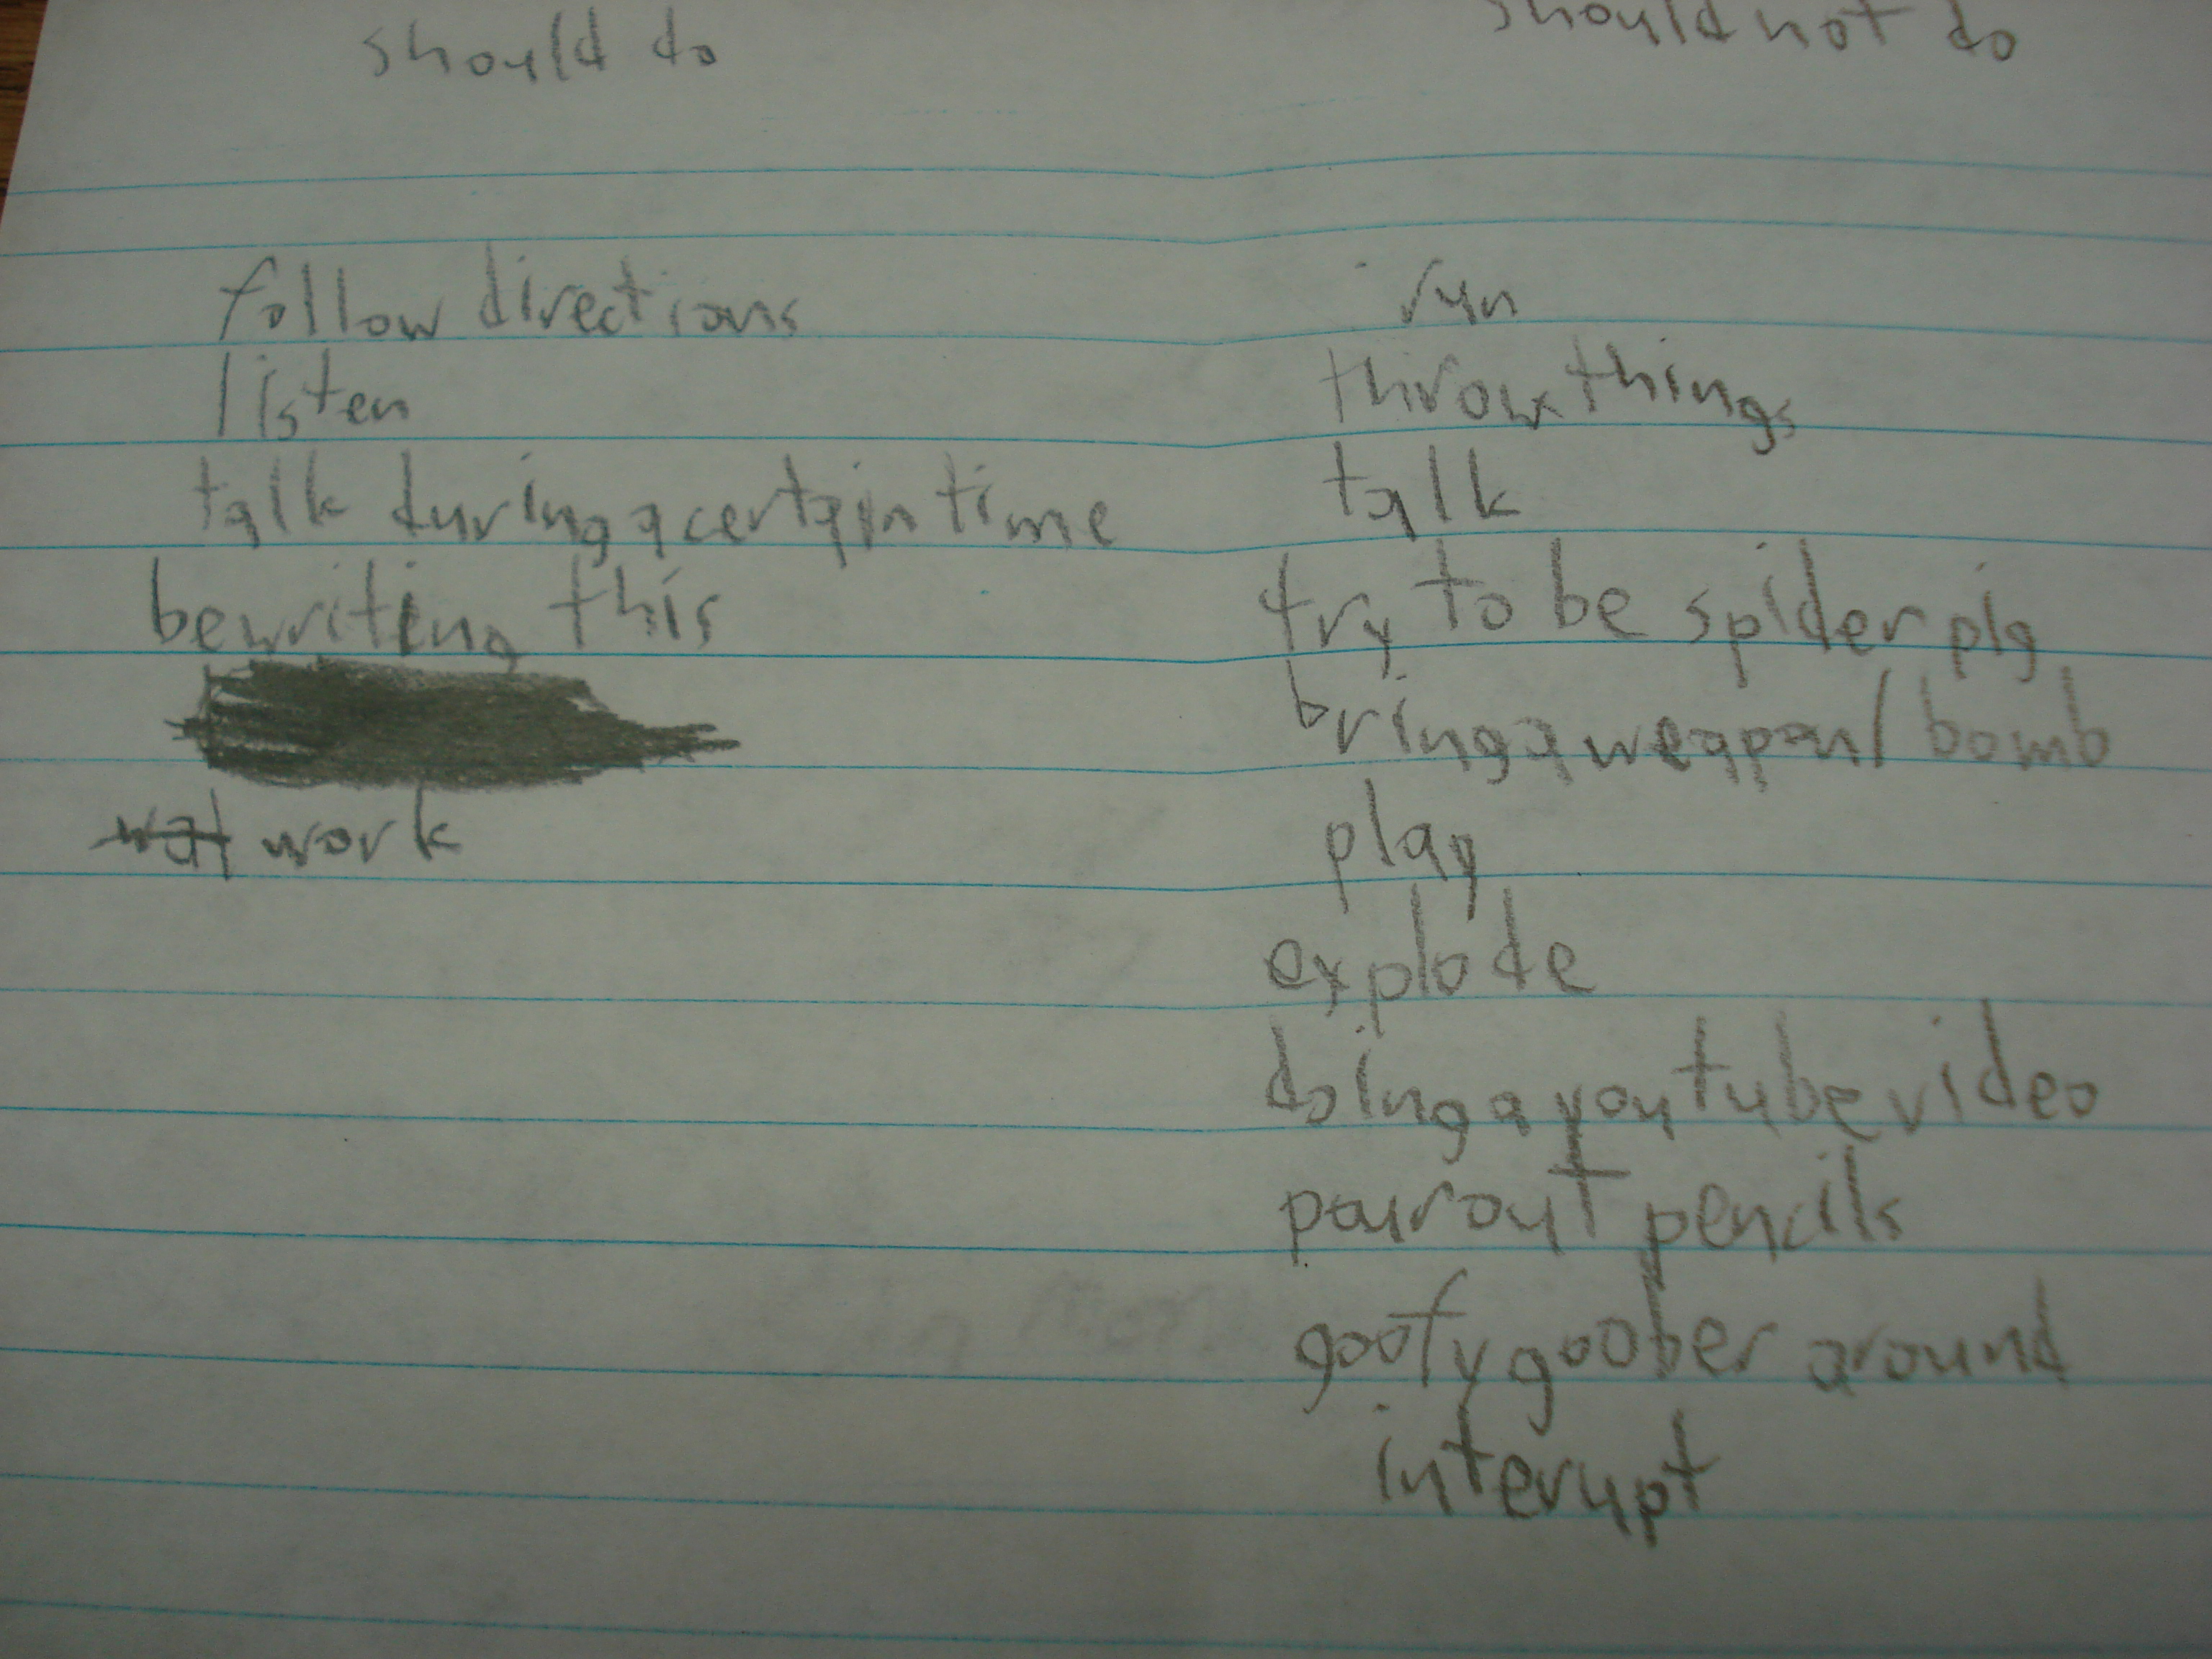 should do
follow directions
listen
talk during a certain time
be writing this
work
should not do
run
throw things
talk
try to be spider pig
bring a weapon/bomb
play
explode
doing a youtube video
pour out pencils
goofy goober around
interupt